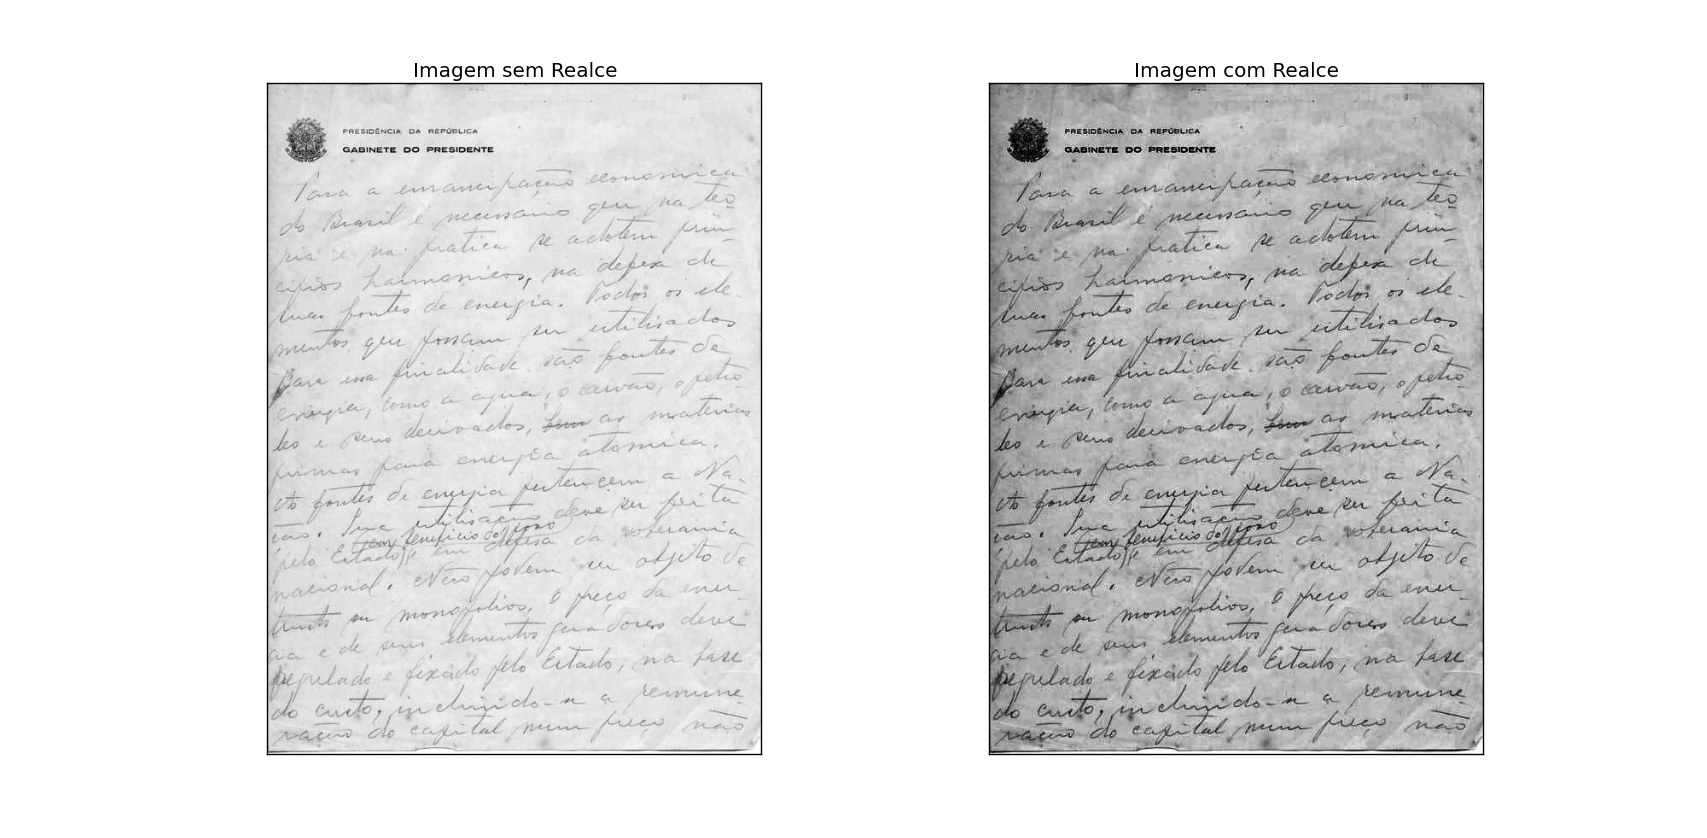 Imagem sem Realce
PRESIDÊNCIA DA REPÚBLICA
GABINETE DO PRESIDENTE
Para a emancipação economica
do Brasil é necessario que na teo
ria e na pratica se adotem prin-
cipios harmonicos, na defesa de
suas fontes de energia. Todos os ele-
mentos que possam ser utilisados
para essa finalidade são fontes de
energia, como a agua, o carvão, o petro
leo e seus derivados, as materias
primas para energia atomica.
As fontes de energia pertencem a Na-
ção. Sua utilisação deve ser feita
em beneficio do povo
pelo Estado e em defesa da soberania
nacional. Não podem ser objeto de
trusts ou monopolios, o preço da ener-
gia e de seus elementos geradores deve
regulado e fixado pelo Estado, na base
do custo, incluindo-se a remune-
ração do capital num preço não
Imagem com Realce
PRESIDÊNCIA DA REPÚBLICA
GABINETE DO PRESIDENTE
Para a emancipação economica
do Brasil é necessario que na teo
ria e na pratica se adotem prin-
cipios harmonicos, na defesa de
suas fontes de energia. Todos os ele-
mentos que possam ser utilisados
para essa finalidade são fontes de
energia, como a agua, o carvão, o petro
leo e seus derivados, as materias
primas para energia atomica.
As fontes de energia pertencem a Na-
ção. Sua utilisação deve ser feita
em beneficio do povo
pelo Estado e em defesa da soberania
nacional. Não podem ser objeto de
trusts ou monopolios, o preço da ener-
gia e de seus elementos geradores deve
regulado e fixado pelo Estado, na base
do custo, incluindo-se a remune-
ração do capital num preço não